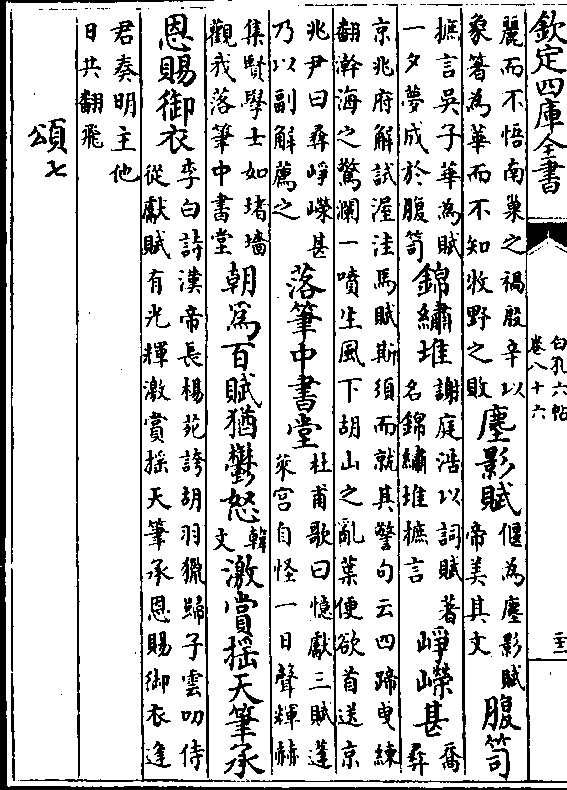 欽定四庫全書
白孔六帖
卷八十六
麗而不悟南巢之禍殷辛以
象箸為華而不知牧野之敗
塵影賦
偃為塵影賦
帝美其文
腹笥
摭言吳子華為賦
一夕夢成於腹笥
錦繡堆
謝庭浩以詞賦著
名錦繡堆摭言
崢嶸甚
喬
彛
京兆府解試渥洼馬賦斯須而就其警句云四蹄曳練
翻瀚海之驚瀾一噴生風下胡山之亂葉便欲首送京
兆尹曰彛崢嶸甚
乃以副解薦之
落筆中書堂
杜甫歌曰憶獻三賦蓬
萊宫自怪一日聲輝赫
集賢學士如堵墻
觀我落筆中書堂
朝為百賦猶鬱怒
韓
文
激賞揺天筆承
恩賜御衣
李白詩漢帝長楊苑誇胡羽獵歸子雲叨侍
從獻賦有光輝激賞揺天筆承恩賜御衣逢
君奏明主他
日共翻飛
頌七